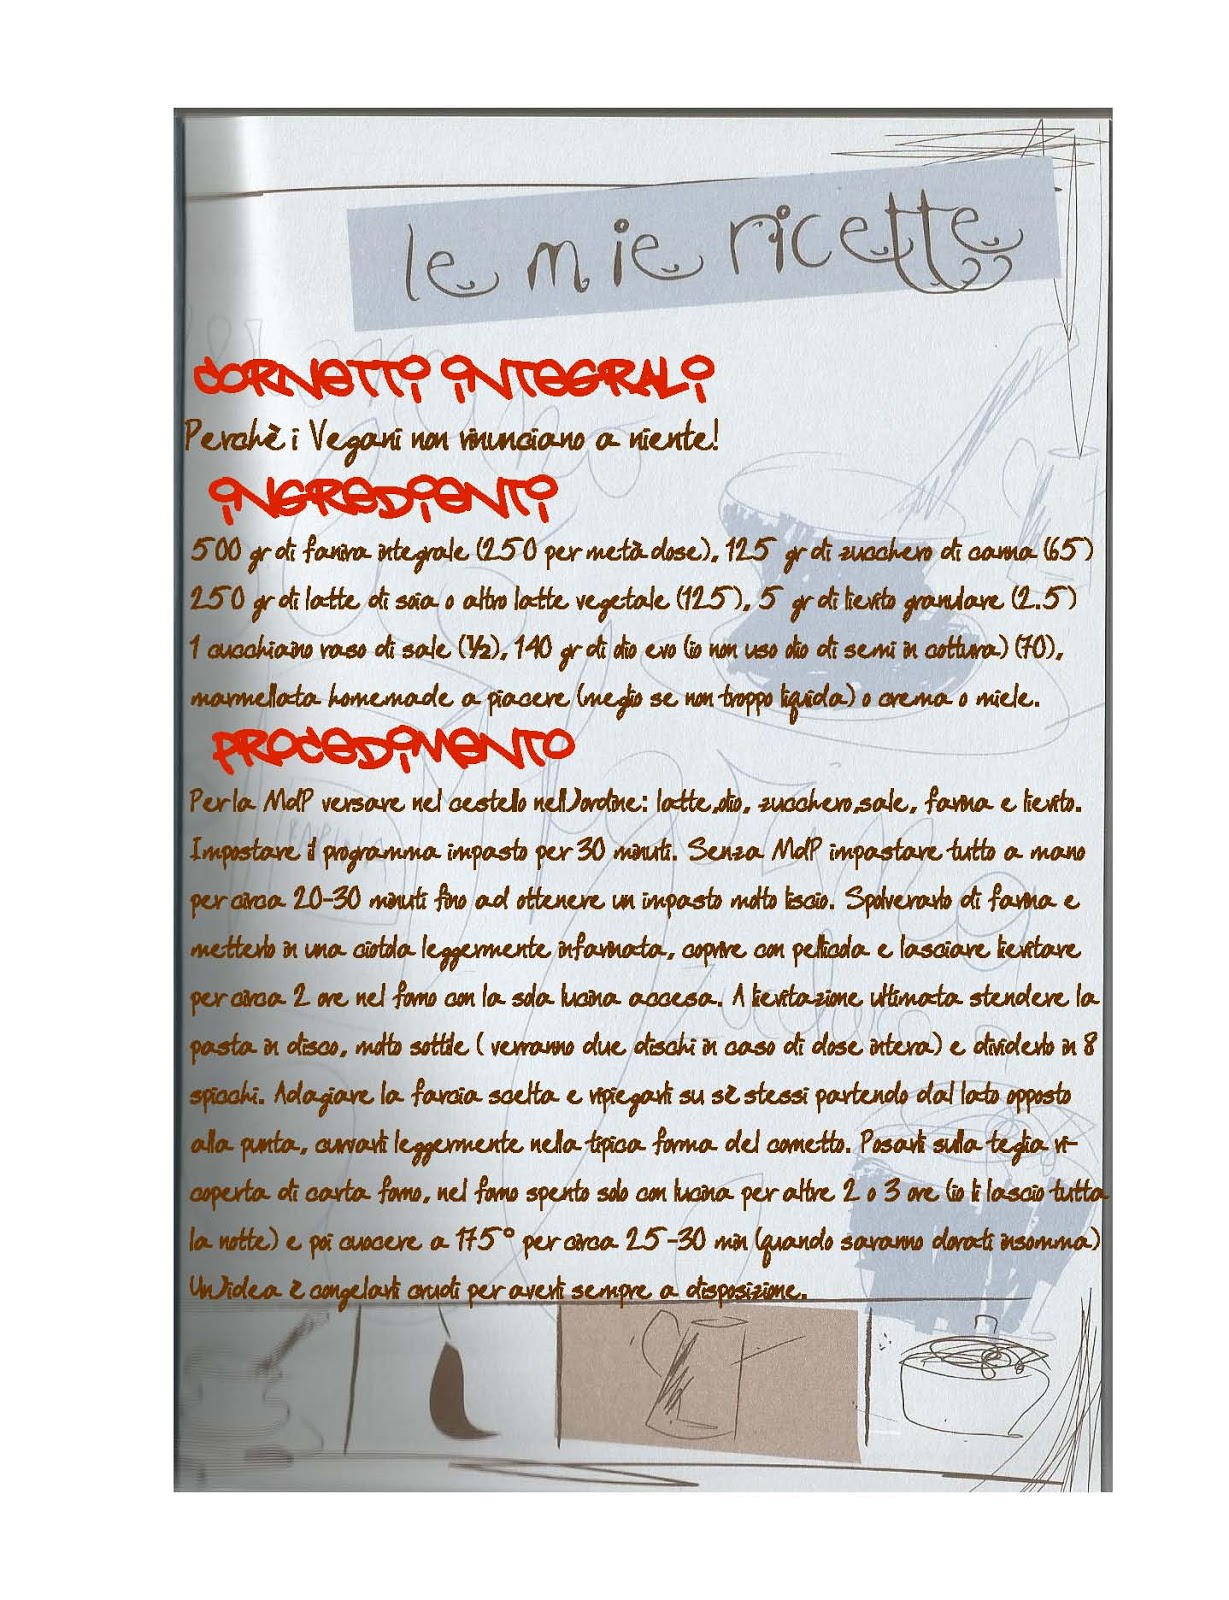 le mie ricette
CORNETTI INTEGRALI
Perchè i Vegani non rinunciano a niente!
INGREDIENTI
500 gr di farina integrale (250 per metà dose), 125 gr di zucchero di canna (65)
250 gr di latte di soia o altro latte vegetale (125), 5 gr di lievito granulare (2.5)
1 cucchiaino raso di sale (½), 140 gr di olio evo (io non uso olio di semi in cottura) (70),
marmellata homemade a piacere (meglio se non troppo liquida) o crema o miele.
PROCEDIMENTO
Per la MdP versare nel cestello nell'ordine: latte,olio, zucchero,sale, farina e lievito.
Impostare il programma impasto per 30 minuti. Senza MdP impastare tutto a mano
per circa 20-30 minuti fino ad ottenere un impasto molto liscio. Spolverarlo di farina e
metterlo in una ciotola leggermente infarinata, coprire con pellicola e lasciare lievitare
per circa 2 ore nel forno con la sola lucina accesa. A lievitazione ultimata stendere la
pasta in disco, molto sottile ( verranno due dischi in caso di dose intera) e dividerlo in 8
spicchi. Adagiare la farcia scelta e ripiegarli su sè stessi partendo dal lato opposto
alla punta, curvarli leggermente nella tipica forma del cornetto. Posarli sulla teglia ri-
coperta di carta forno, nel forno spento solo con lucina per altre 2 o 3 ore (io li lascio tutta
la notte) e poi cuocere a 175° per circa 25-30 min (quando saranno dorati insomma)
Un'idea è congelarli crudi per averli sempre a disposizione.